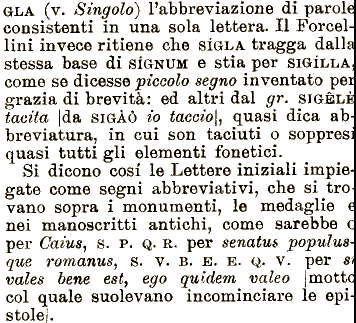 GLA (v. Singolo) l'abbreviazione di parole
consistenti in una sola lettera. Il Forcel-
lini invece ritiene che SÍGLA tragga dalla
stessa base di SÍGNUM e stia per SIGÍLLA,
come se dicesse piccolo segno inventato per
grazia di brevità: ed altri dal gr. SIGÊLÊ
tacita |da SIGÀÔ io taccio|, quasi dica ab-
breviatura, in cui son taciuti o soppresi
quasi tutti gli elementi fonetici.
Si dicono cosí le Lettere iniziali impie-
gate come segni abbreviativi, che si tro-
vano sopra i monumenti, le medaglie e
nei manoscritti antichi, come sarebbe c
per Caius, S. P. Q. R. per senatus populus-
que romanus, S. V. B. E. E. Q. V. per si
vales bene est, ego quidem valeo |motto
col quale suolevano incominciare le epi-
stole|.